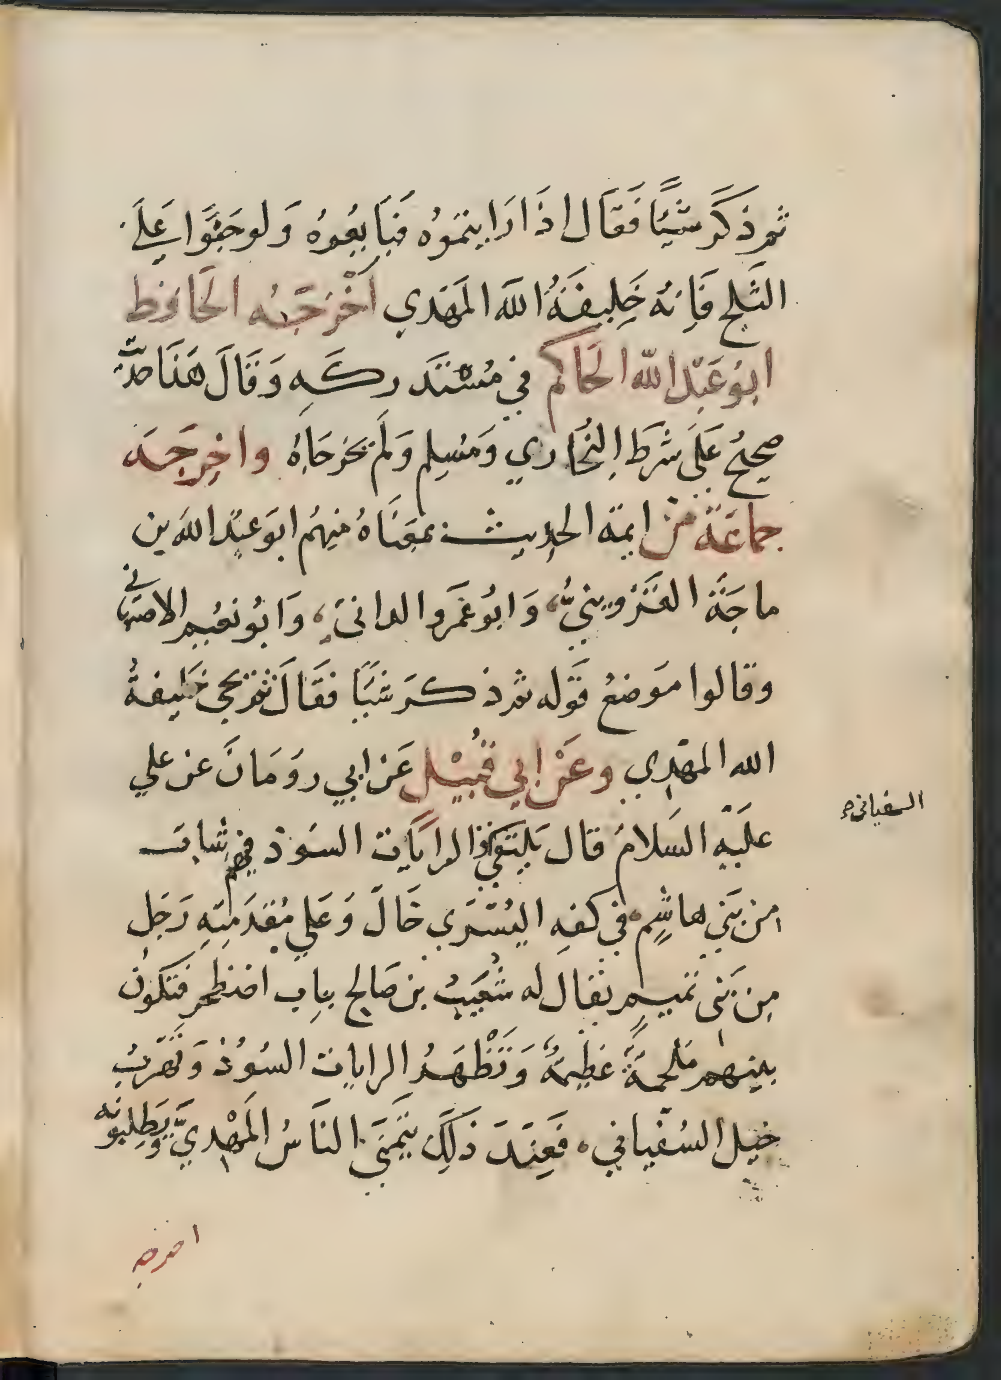 ثم ذكر شيئا فقال اذا رايتموه فبايعوه ولو حبوا على
الثلج فانه خليفة الله المهدي اخرجه الحافظ
ابو عبد الله الحاكم في مستدركه وقال هذا حديث
صحيح على شرط البخاري ومسلم ولم يخرجاه واخرجه
جماعة من ايمة الحديث بمعناه منهم ابو عبد الله بن
ماجة القزويني، وابو عمرو الداني، وابو نعيم الاصبهاني
وقالوا موضع قوله ثم ذكر شيئا فقال ثم يجي خليفة
الله المهدي وعن ابي قبيل عن ابي رومان عن علي
عليه السلام قال يلتقي الرايات السود فيهم شاب
السفياني و
من بني هاشم في كفه اليسرى خال وعلى مقدمته رجل
من بني تميم يقال له شعيب بن صالح بباب اصطخر فتكون
بينهم ملحمة عظيمة وتظهر الرايات السود وتهرب
خيل السفياني، فعند ذلك يتمنى الناس المهدي ويطلبونه
اخرجه